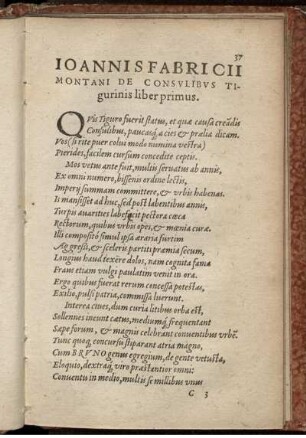 37
IOANNIS FABRICII
MONTANI DE CONSVLIBVS TI-
gurinis liber primus.
QVis Tiguro fuerit status, et quæ causa creãdis
Consulibus, paucaq́; acies & prælia dicam.
Vos (si rite puer colui modo numina vestra)
Pierides, facilem cursum concedite ceptis.
Mos vetus ante fuit, multis seruatus ab annis,
Ex omni numero, bissenis ordine lectis,
Imperij summam committere, & vrbis habenas.
Is mansisset ad huc, sed post labentibus annis,
Turpis auarities labefecit pectora cæca
Rectorum, quibus vrbis opes, & mœnia curæ.
Illi composito simul ipsa araria furtim
Aggressi, & sceleris partiti præmia secum,
Longius haud texere dolos, nam cognita famæ
Fraus etiam vulgi paulatim venit in ora.
Ergo quibus fuerat rerum concessa potestas,
Exilio, pulsi patria, commissa luerunt.
Interea ciues, dum curia litibus orba est,
Sollennes ineunt cætus, mediumq́; frequentant
Sæpe forum, & magnis celebrant conuentibus vrbẽ.
Tunc quoq; concursu stiparant atria magno,
Cum BRVNO genus egregium, de gente vetusta,
Eloquio, dextraq́; viro præstantior omni:
Conuentu in medio, multis se millibus vnus
C 3